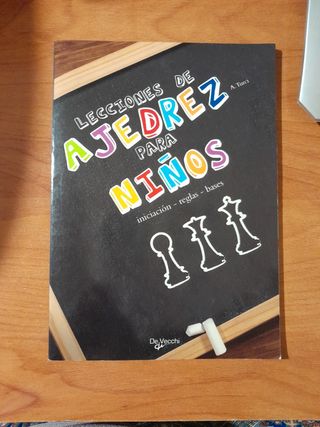 LECCIONES DE
A. Turci
AJEDREZ
PARA
NIÑOS
iniciación - reglas - bases
De Vecchi